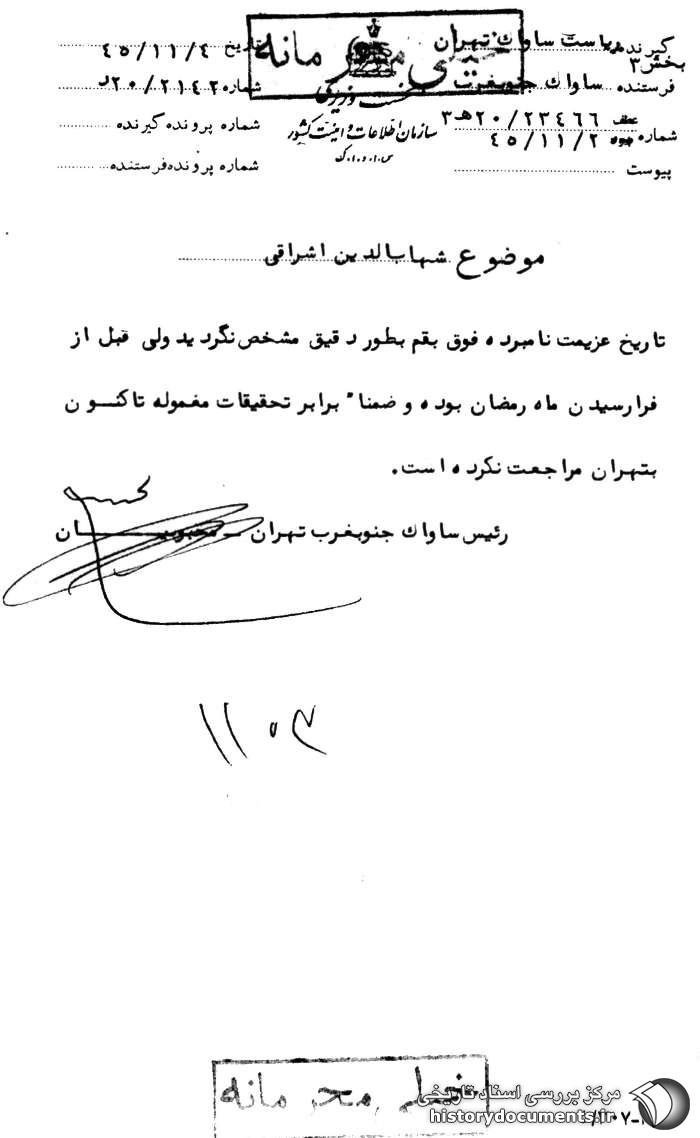 خیلی محرمانه
گیرنده ریاست ساواک تهران بخش ۳
تاریخ ۴۵/۱۱/۴
فرستنده ساواک جنوبغرب
شماره ۲۰/۲۱۴۲د
نخست وزیری
عطف ۲۰/۲۳۴۶۶ه۳
شماره پرونده گیرنده
سازمان اطلاعات و امنیت کشور
شماره ۴۵/۱۱/۲
س.ا.و.ا.ک
شماره پرونده فرستنده
پیوست
موضوع شهاب‌الدین اشراقی
تاریخ عزیمت نامبرده فوق بقم بطور دقیق مشخص نگردید ولی قبل از
فرارسیدن ماه رمضان بوده و ضمناً برابر تحقیقات معموله تاکنــون
بتهران مراجعت نکرده است.
رئیس ساواک جنوبغرب تهران ـ محبوبیــان
۱۱۰۳
خیلی محرمانه
مرکز بررسی اسناد تاریخی
historydocuments.ir